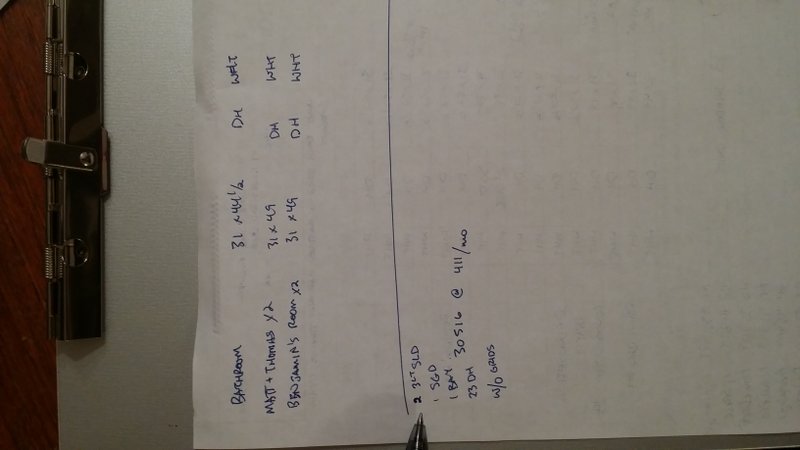 BATHROOM 31 x 44 1/2 DH WHT
MATT + THOMAS x2 31 x 49 DH WHT
BENJAMIN'S ROOM x2 31 x 49 DH WHT
2 3LT SLD
1 SGD
1 BAY 30516 @ 411/mo
23 DH
W/O GRIDS